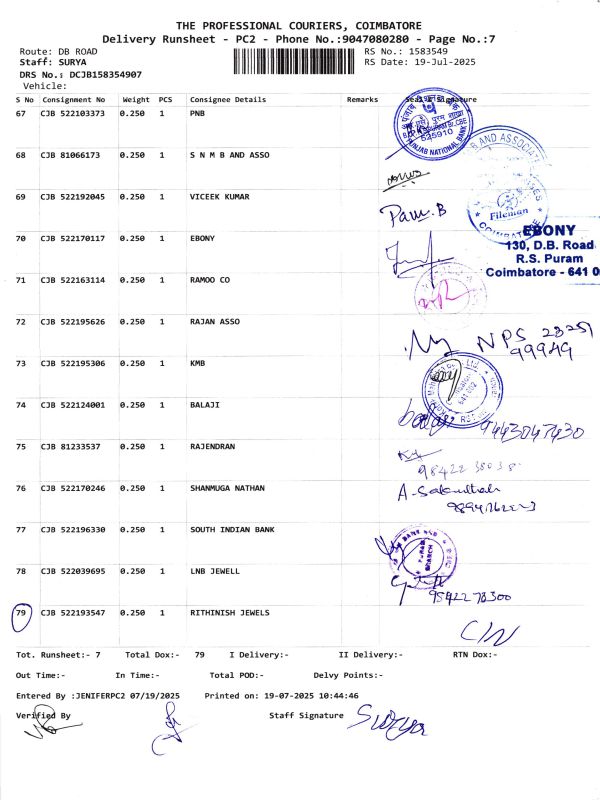 THE PROFESSIONAL COURIERS, COIMBATORE
Delivery Runsheet - PC2 - Phone No.:9047080280 - Page No.:7
Route: DB ROAD RS No.: 1583549
Staff: SURYA RS Date: 19-Jul-2025
DRS No.: DCJB158354907
Vehicle:
S No Consignment No Weight PCS Consignee Details Remarks Seal & Signature
67 CJB 522103373 0.250 1 PNB
545910
PUNJAB NATIONAL BANK
68 CJB 81066173 0.250 1 S N M B AND ASSO
B AND ASSOCIATE
69 CJB 522192045 0.250 1 VICEEK KUMAR
Pam.B
Fileman
COIMBATORE
70 CJB 522170117 0.250 1 EBONY
EBONY
130, D.B. Road
R.S. Puram
Coimbatore - 641 0
71 CJB 522163114 0.250 1 RAMOO CO
72 CJB 522195626 0.250 1 RAJAN ASSO
NPS
99949
73 CJB 522195306 0.250 1 KMB
74 CJB 522124001 0.250 1 BALAJI
9443047430
75 CJB 81233537 0.250 1 RAJENDRAN
98422
76 CJB 522170246 0.250 1 SHANMUGA NATHAN
77 CJB 522196330 0.250 1 SOUTH INDIAN BANK
BRANCH
78 CJB 522039695 0.250 1 LNB JEWELL
79 CJB 522193547 0.250 1 RITHINISH JEWELS
Tot. Runsheet:- 7 Total Dox:- 79 I Delivery:- II Delivery:- RTN Dox:-
Out Time:- In Time:- Total POD:- Delvy Points:-
Entered By :JENIFERPC2 07/19/2025 Printed on: 19-07-2025 10:44:46
Verified By Staff Signature Surya